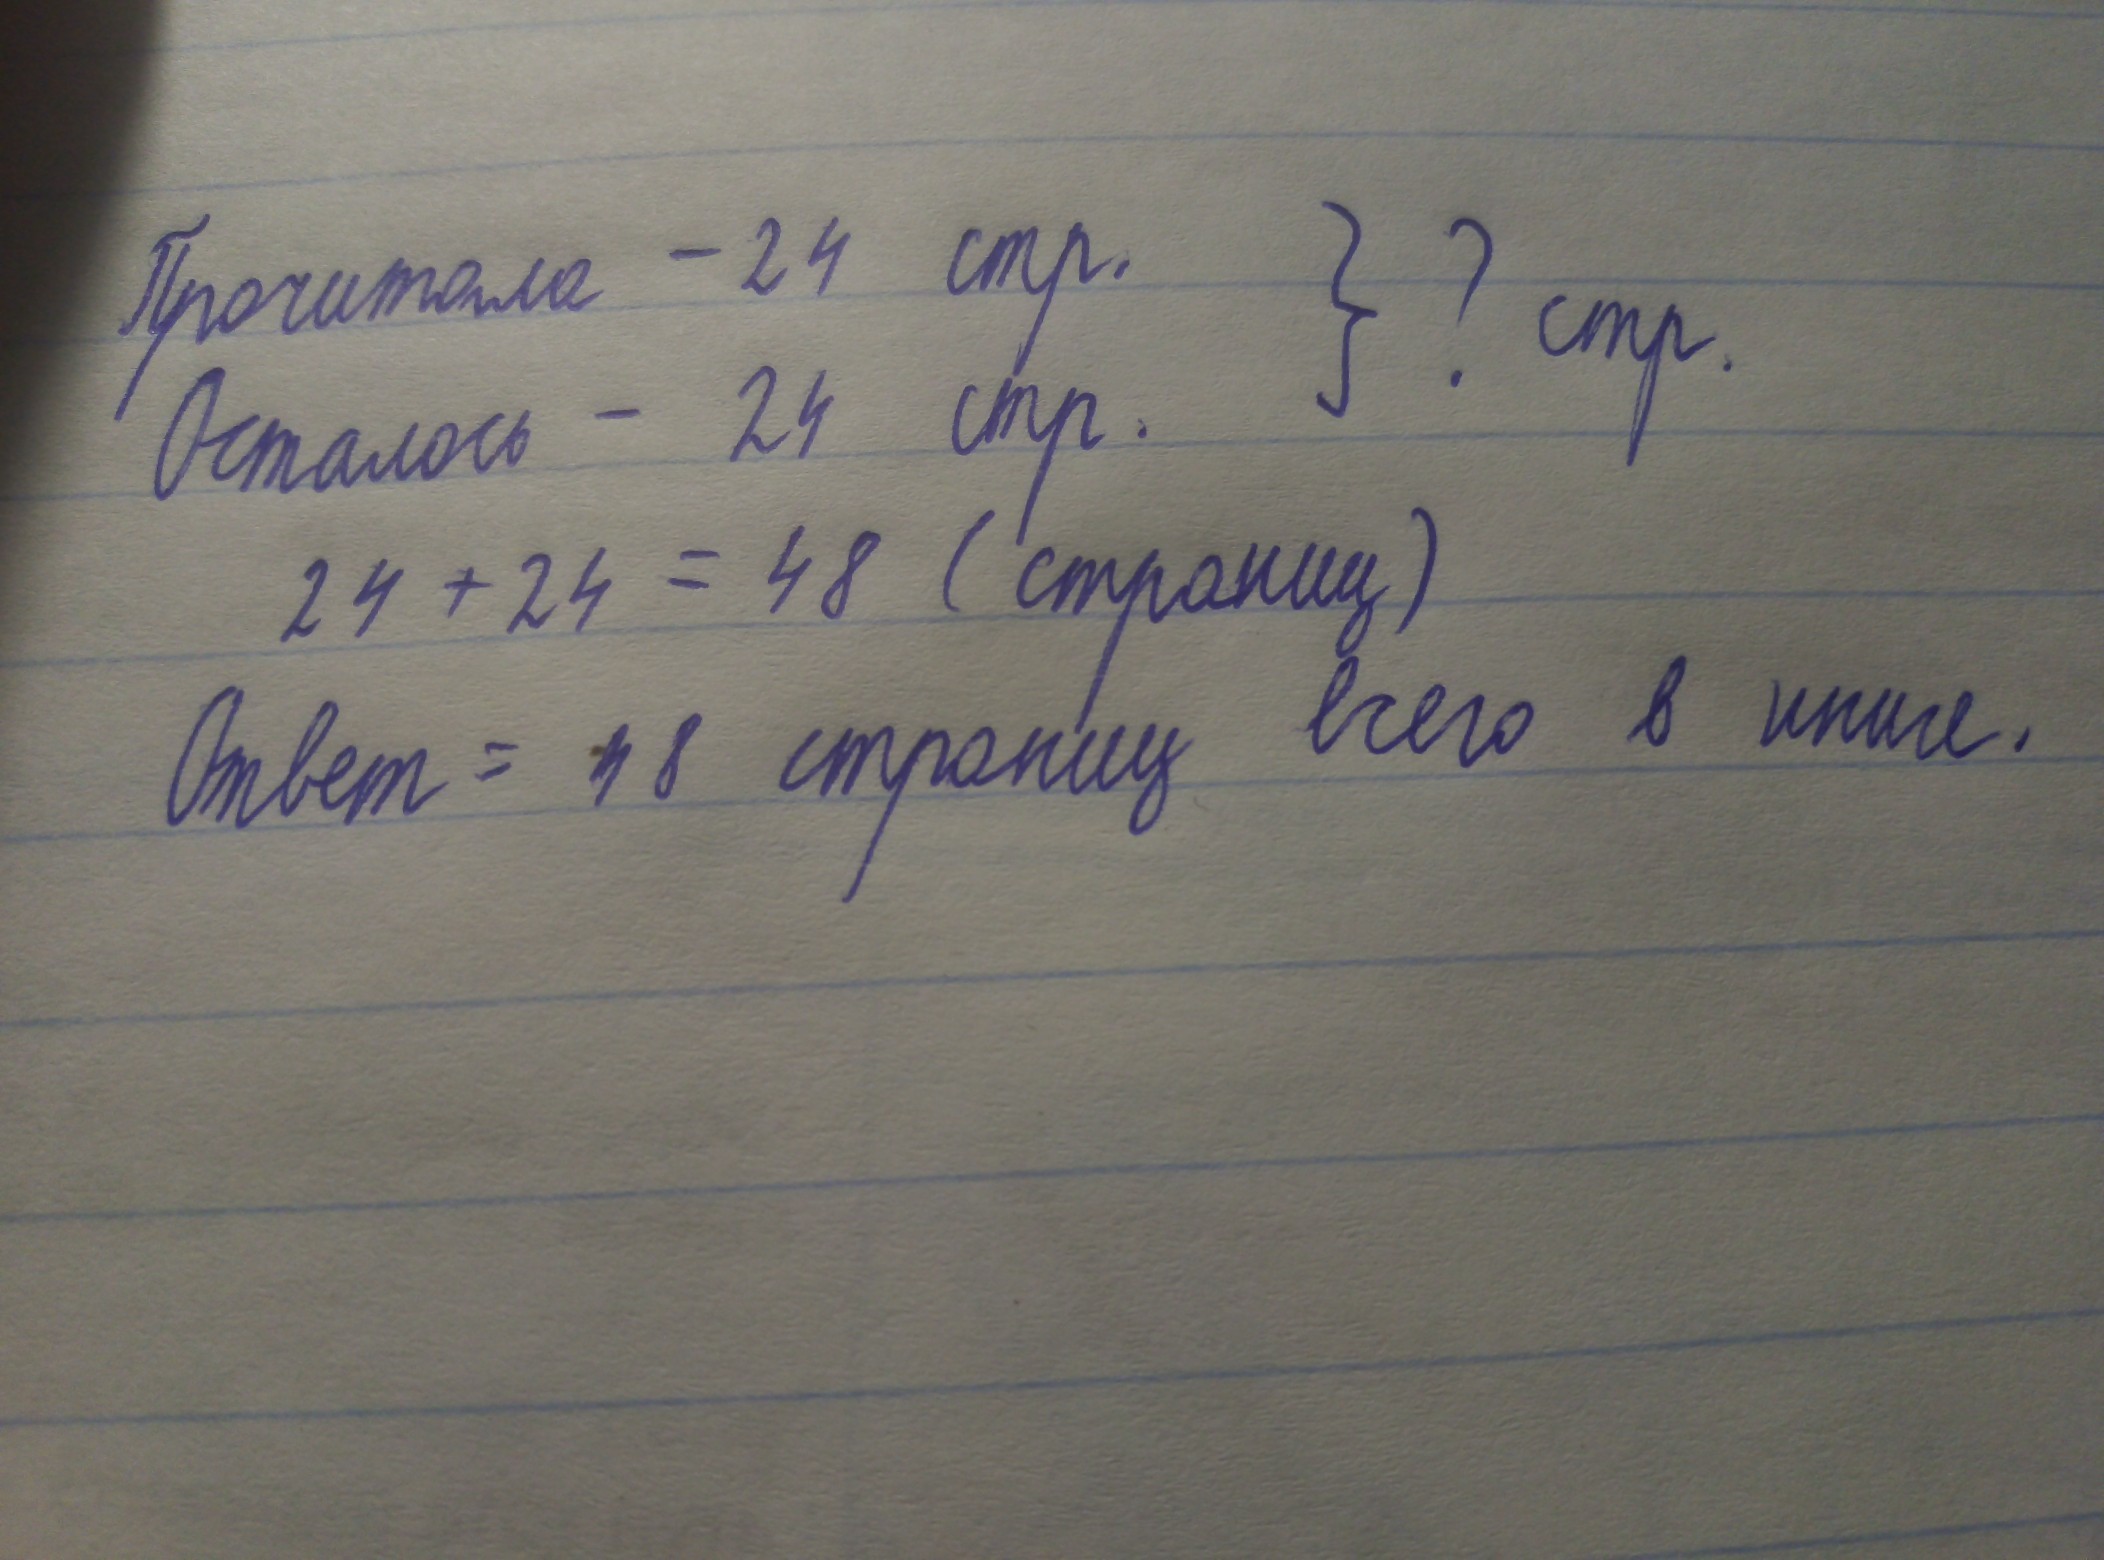 Прочитала - 24 стр. } ? стр.
Осталось - 24 стр.
24 + 24 = 48 (страниц)
Ответ = 48 страниц всего в книге.